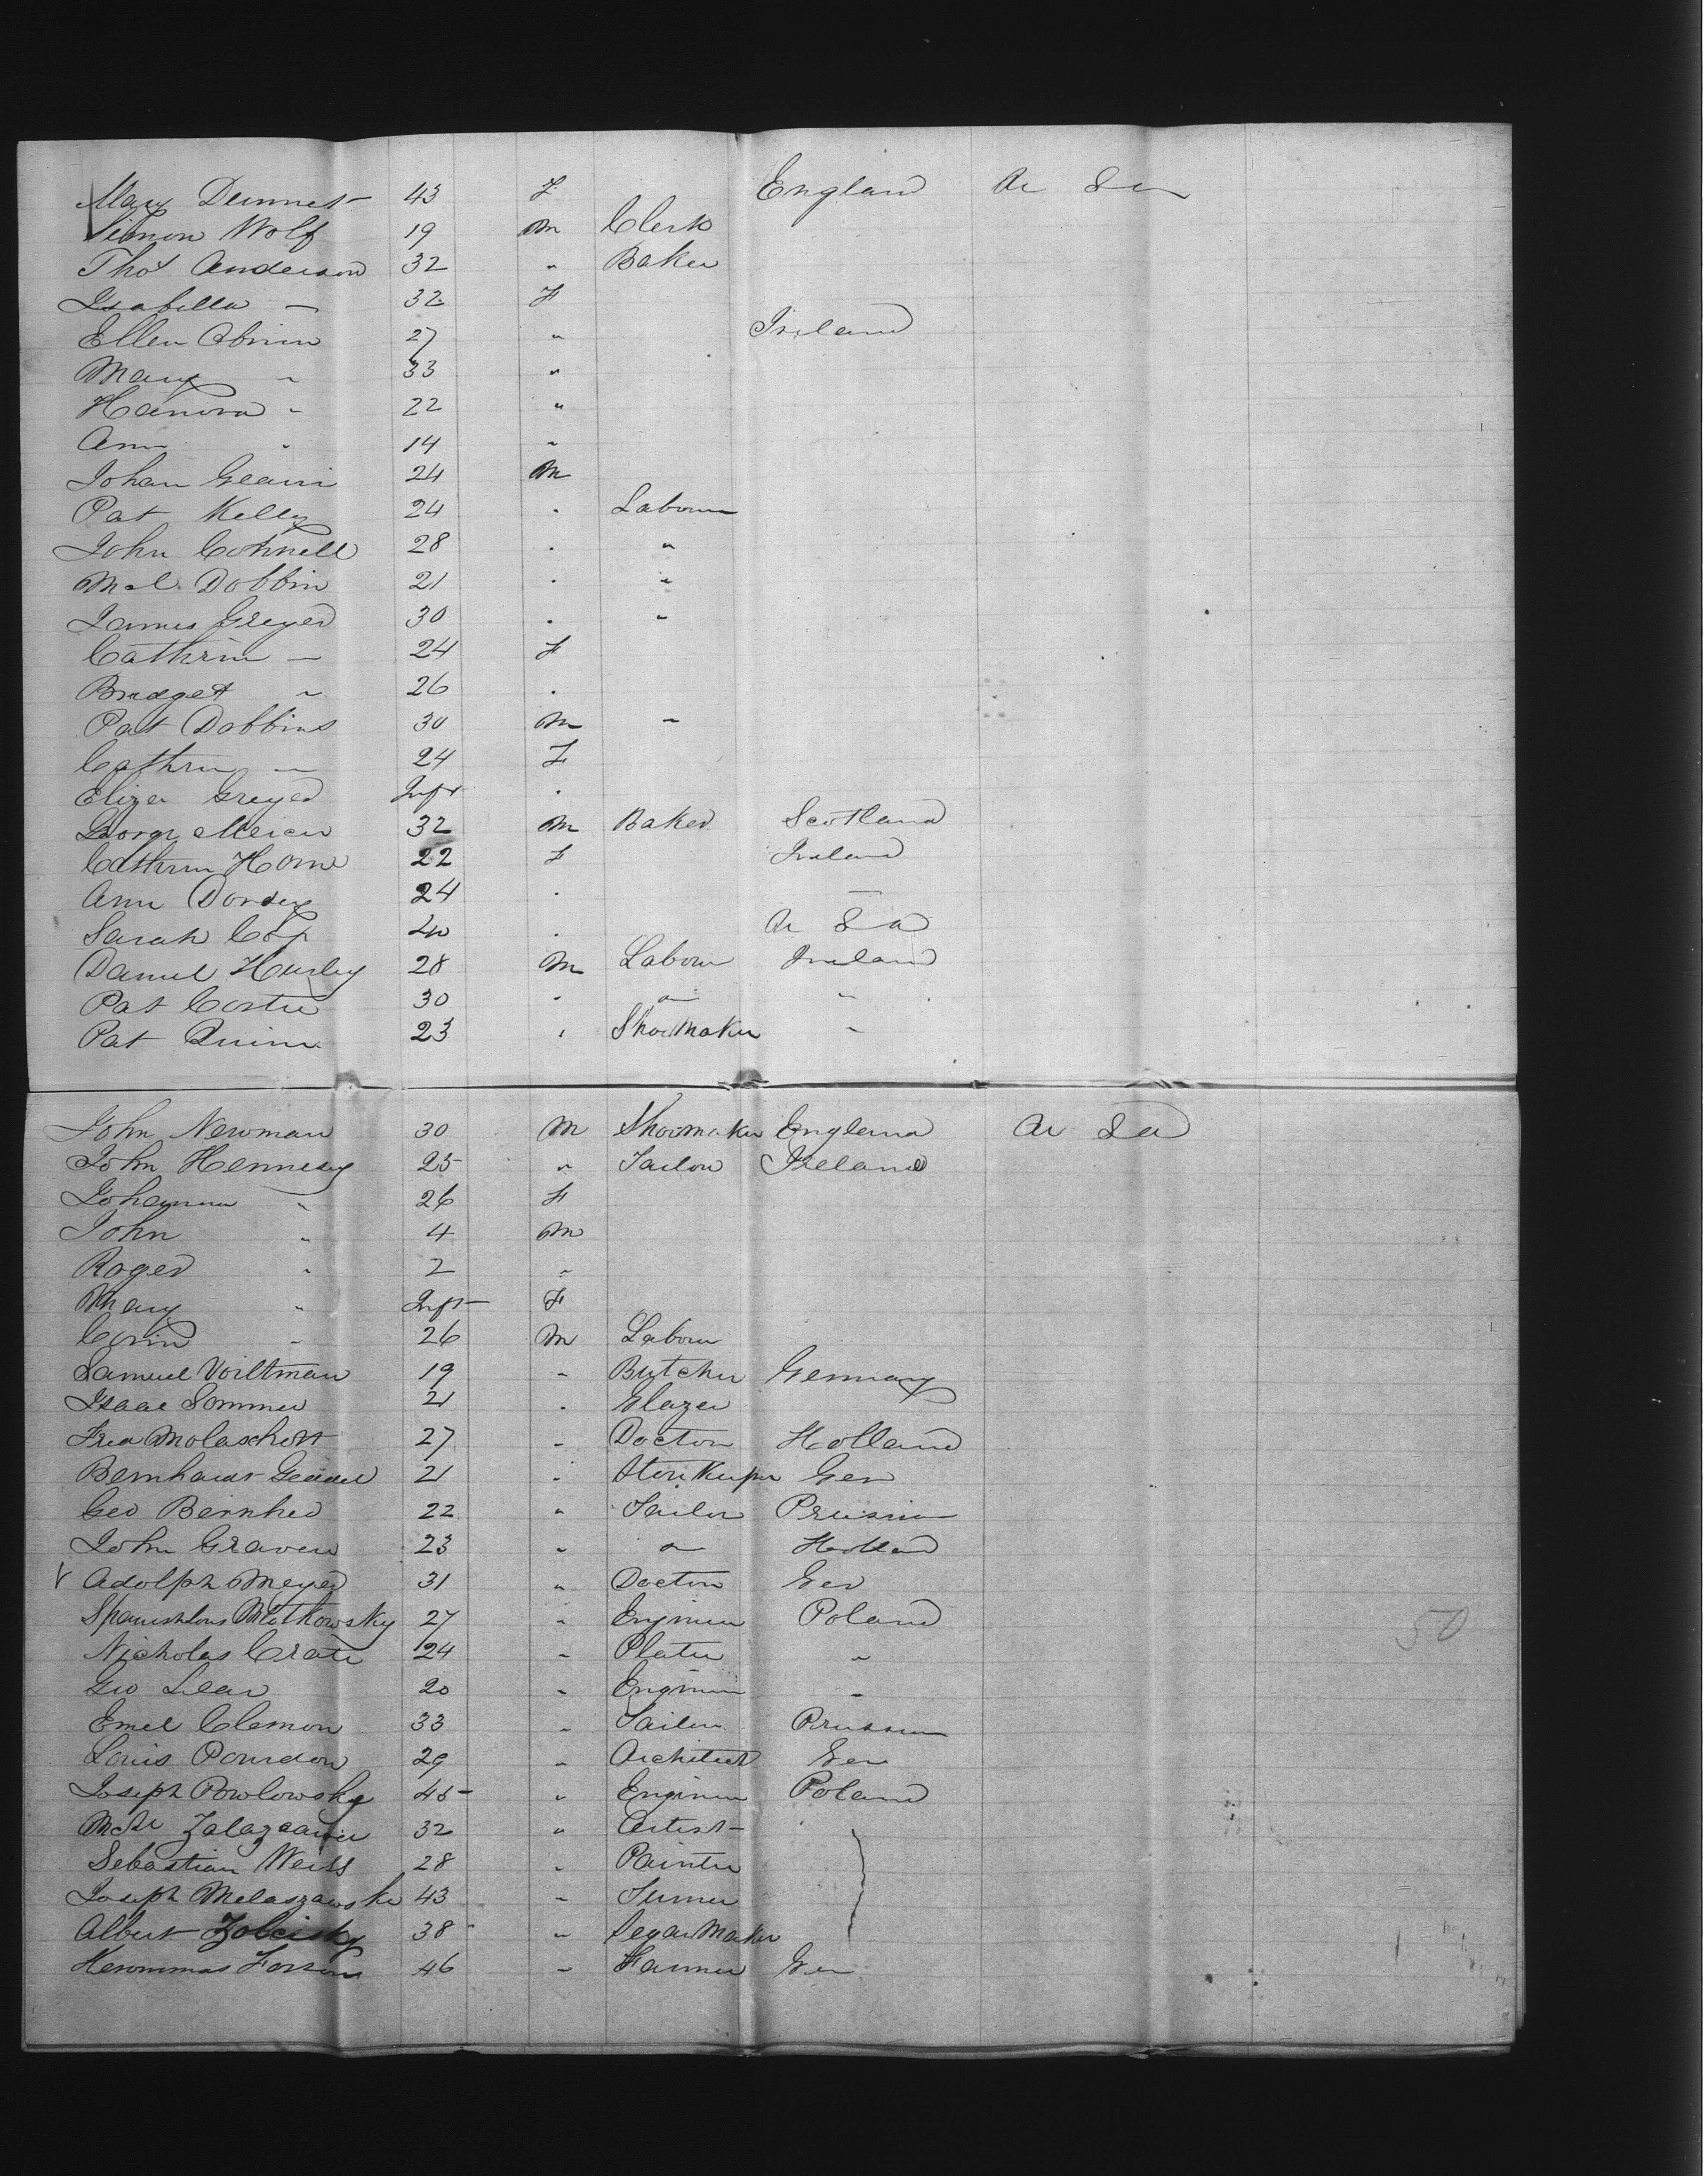 Mary Dennet 43 F England U S A
Simon Wolf 19 M Clerk
Thos Anderson 32 " Baker
Isabella — 32 F
Ellen Obrien 27 " Ireland
Mary " 33 "
Hanora " 22 "
Ann " 14 "
Johan 24 M
Pat Kelly 24 " Labourer
John Connell 28 " "
Mcl Dobbin 21 " "
James Greyer 30 " "
Cathrin — 24 F
Bridget " 26 "
Pat Dobbins 30 M "
Cathrin — 24 F
Eliza Greyer Inft "
George Mercer 32 M Baker Scotland
Cathrin Horne 22 F Ireland
Ann Dorsey 24 " —
Sarah 40 " U S A
Daniel Hurley 28 M Labour Ireland
Pat Coster 30 " " "
Pat Quinn 23 " ShoeMaker "
John Newman 30 M Shoemaker England U S A
John Hennesy 25 " Tailor Ireland
Johanna " 26 F
John " 4 M
Roger " 2 "
Mary " Inft F
" 26 M Labour
Samuel Voiltman 19 " Butcher Germany
Isaac Sommer 21 " Glazer
Fred Molaschott 27 " Doctor Holland
Bernhardt 21 " Store Keeper Ger
Geo Bernher 22 " Tailor Prussia
John Graven 23 " " Holland
Adolph Meyer 31 " Doctor Ger
27 " Engineer Poland
Nicholas Crate 24 " Plater "
Geo Lear 20 " Engineer "
Emel Clemon 33 " Tailor Prussia
Louis 29 " Architect Ger
Joseph Powlowsky 45 " Engineer Poland
32 " Artist
Sebastian Weiss 28 " Painter
Joseph Melaszawske 43 " Turner
Albert 38 " Segar Maker
46 " Farmer Ger
50